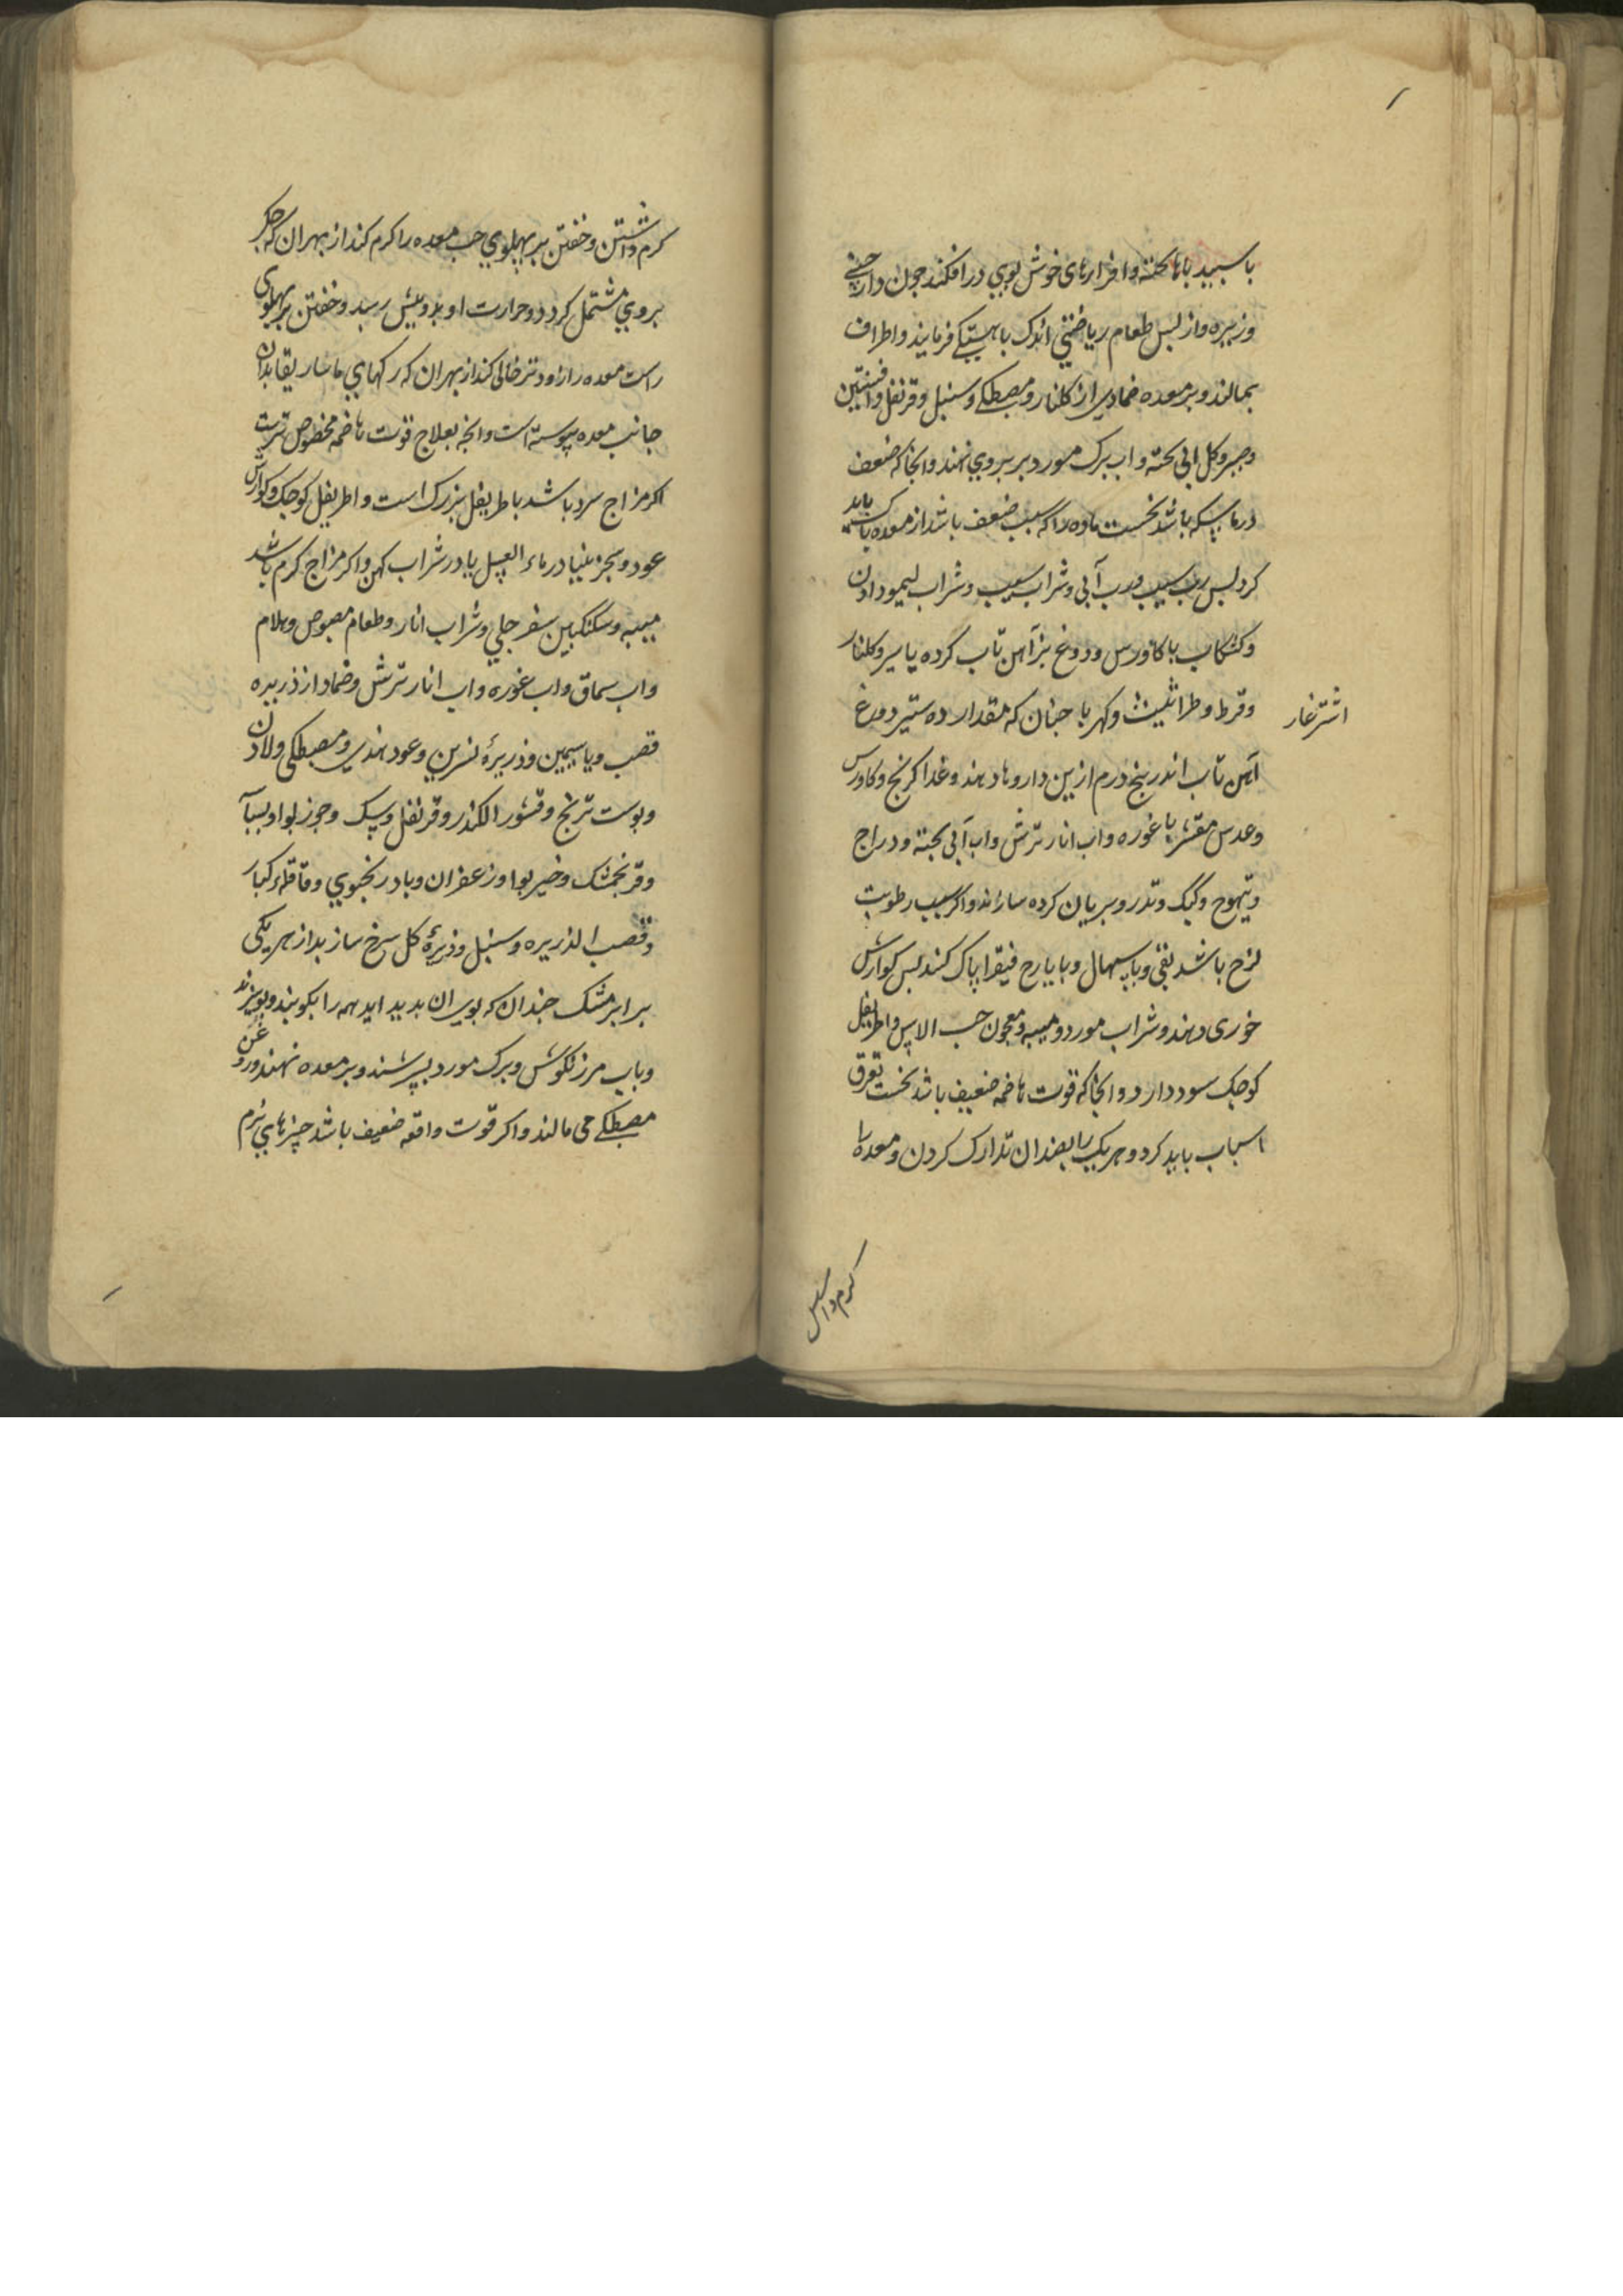 باسبید باها بخته وافزارهای خوش بوی درافکند جون دارجینی
وزیره واز بس طعام ریاضتی اندک باهستکی فرمایند واطراف
بمالند وبر معده ضمادی از کلنار ومصطکی وسنبل وقرنفل وافسنتین
وصبر وکل ابی بخته واب برک مورد بر بروی نهند وانجا که ضعف
درماسکه باشد نخست ماده را که سبب ضعف باشد از معده باک باید
کرد بس رب سیب ورب آبی وشراب سیب وشراب لیمو دادن
وکشکاب با کاورس ودوغ بز آهن تاب کرده یا سیر وکلنار
وقرط وطراثیث وکهربا جنان که مقدار ده ستیر دوغ
اشترغار
آهن تاب اندر بنج درم ازین داروها دهند وغذا کرنج وکاورس
وعدس مقشر با غوره واب انار ترش واب آبی بخته ودراج
وتیهوج وکبک وتذرو بریان کرده سازند واکر سبب رطوبت
لزج باشد بقی وباسهال وبایارج فیقرا پاک کنند بس کوارش
خوری دهند وشراب مورد ومیبه ومعجون حب الاس واطریفل
کوجک سود دارد وانجا که قوت هاضمه ضعیف باشد نخست تعرق
اسباب باید کرد وهریک را بضد ان تدارک کردن ومعده را
کرم داشتن
کرم داشتن وخفتن بر بهلوی جب معده را کرم کند از بهر ان که جکر
بروی مشتمل کردد وحرارت او بدو بیش رسد وخفتن بر بهلوی
راست معده را زودتر خالی کند از بهر ان که رکهای ماساریقا بدان
جانب معده پیوسته است وانجه بعلاج قوت هاضمه مخصوص ترست
اکر مزاج سرد باشد باطریفل بزرک است واطریفل کوجک وکوارش
عود وسجزینیا در ماء العسل یا در شراب کهن واکر مزاج کرم باشد
میبه وسکنکبین سفرجلی وشراب انار وطعام مصوص وهلام
واب سماق واب غوره واب انار ترش وضماد از ذریره
قصب ویاسیمین وذریرهٔ نسرین وعود هندی ومصطکی ولادن
وبوست ترنج وقشور الکندر وقرنفل وسک وجوز بوا وبسبا
وقرنجمشک وخیر بوا وزعفران وبادرنجبوی وقاقلهٔ کبار
وقصب الذریره وسنبل وذریرهٔ کل سرخ سازند از هر یکی
برابر مشک جندان که بوی ان بدید اید همه را بکوبند وببیزند
وباب مرزنکوش وبرک مورد بسرشند وبر معده نهند وروغن
مصطکی می مالند واکر قوت دافعه ضعیف باشد چیزهای نرم